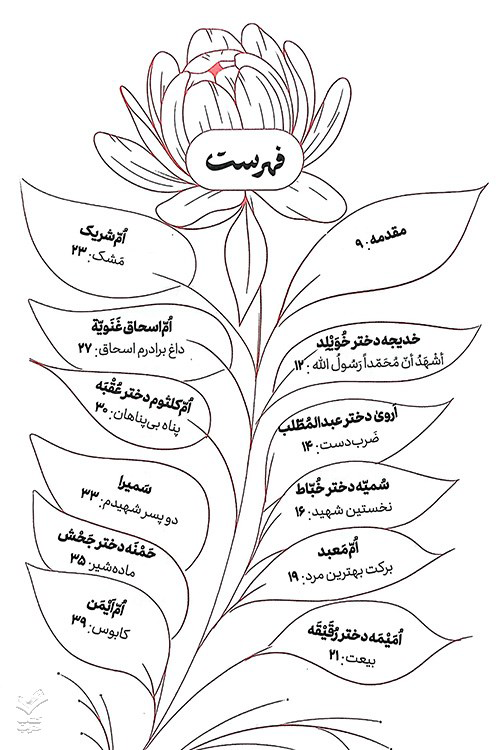 فهرست
مقدمه: ۹
خدیجه دختر خُوَیْلِد
اَشْهَدُ اَنّ مُحَمّداً رَسُولُ الله: ۱۲
اَرویٰ دختر عبدالمُطّلب
ضَرب‌دست: ۱۴
سُمیّه دختر خُبّاط
نخستین شهید: ۱۶
اُمّ‌مَعبد
برکت بهترین مرد: ۱۹
اُمَیْمَه دختر رُقَیْقَه
بیعت: ۲۱
اُمّ‌شریک
مَشک: ۲۳
اُمّ‌اسحاق غَنَویّة
داغ برادرم اسحاق: ۲۷
اُمّ‌کلثوم دختر عُقْبَه
پناه بی‌پناهان: ۳۰
سَمیرا
دو پسر شهیدم: ۳۳
حَمْنَه دختر جَحْش
ماده‌شیر: ۳۵
اُمّ‌اَیْمَن
کابوس: ۳۹